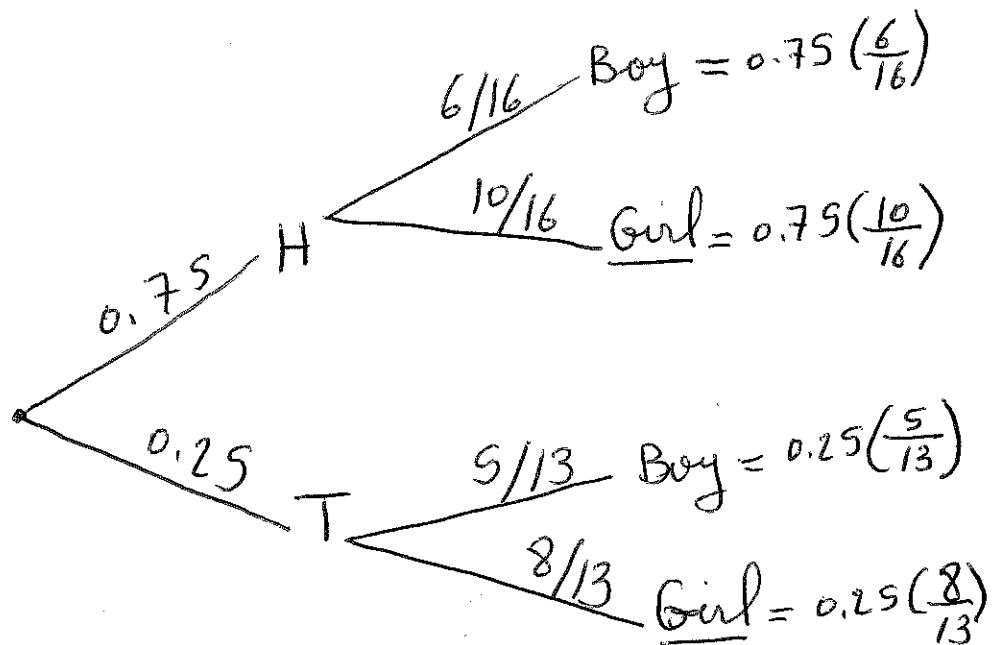 6/16 Boy = 0.75 (6/16)
10/16 Girl = 0.75 (10/16)
H
0.75
0.25
T
5/13 Boy = 0.25 (5/13)
8/13 Girl = 0.25 (8/13)